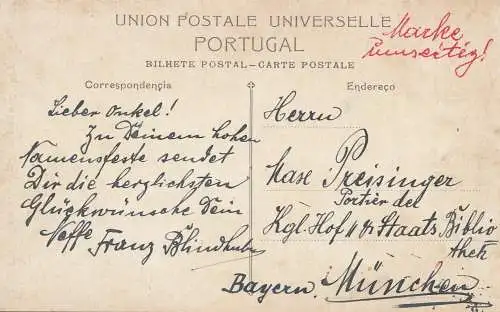 UNION POSTALE UNIVERSELLE
PORTUGAL
BILHETE POSTAL–CARTE POSTALE
Marke
umseitig!
Correspondençia
Lieber Onkel!
Zu Deinem hohen
Namensfeste sendet
Dir die herzlichsten
Glückwünsche Dein
Neffe Franz
Endereço
Herrn
Preisinger
Portier der
Kgl. Hof u. Staats Biblio
thek
München
Bayern.